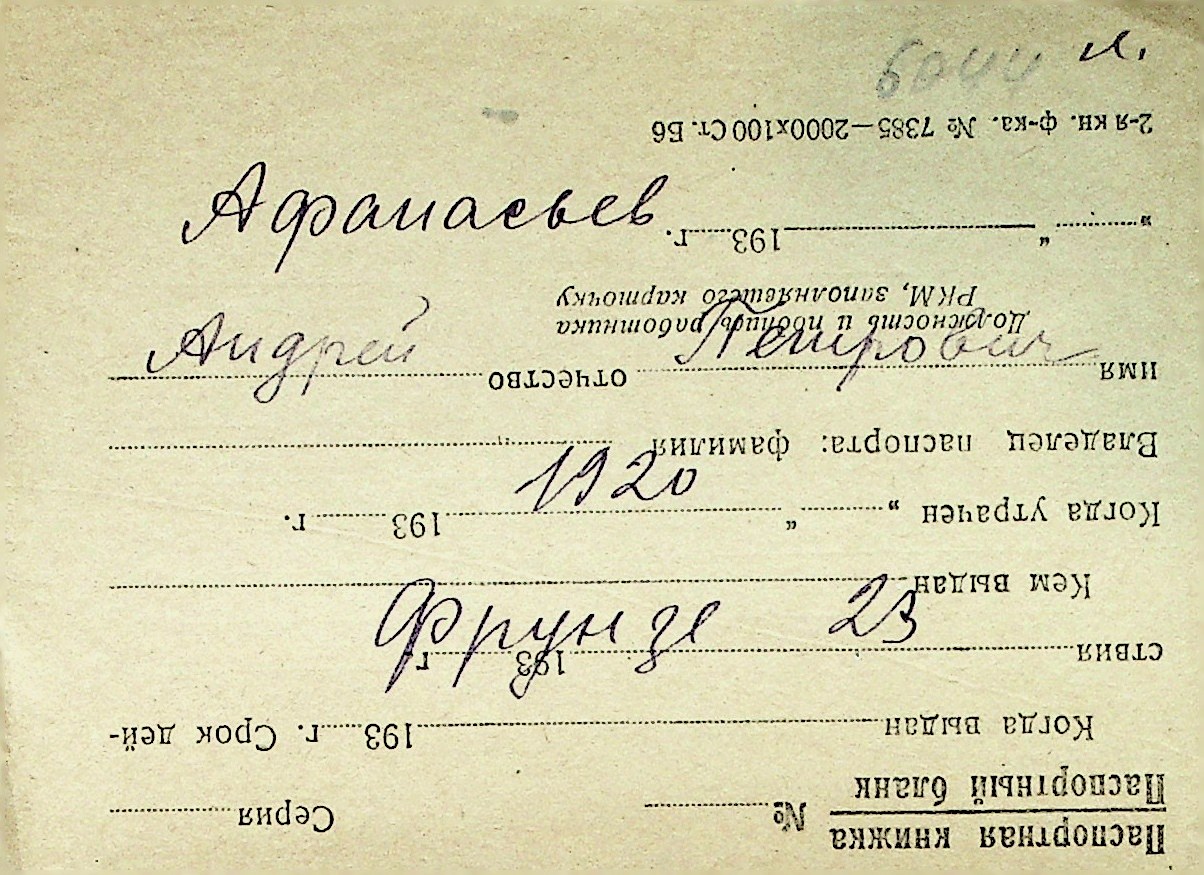 6044 л.
Афанасьев
Андрей Петрович
1920
Фрунзе 23
Паспортная книжка
Паспортный бланк № Серия
Когда выдан 193 г. Срок дей-
ствия 193 г.
Кем выдан
Когда утрачен „ “ 193 г.
Владелец паспорта: фамилия
имя отчество
Должность и подпись работника
РКМ, заполнявшего карточку
„ “ 193 г.
2-я кн. ф-ка. № 7385—2000х100 Ст. Б6